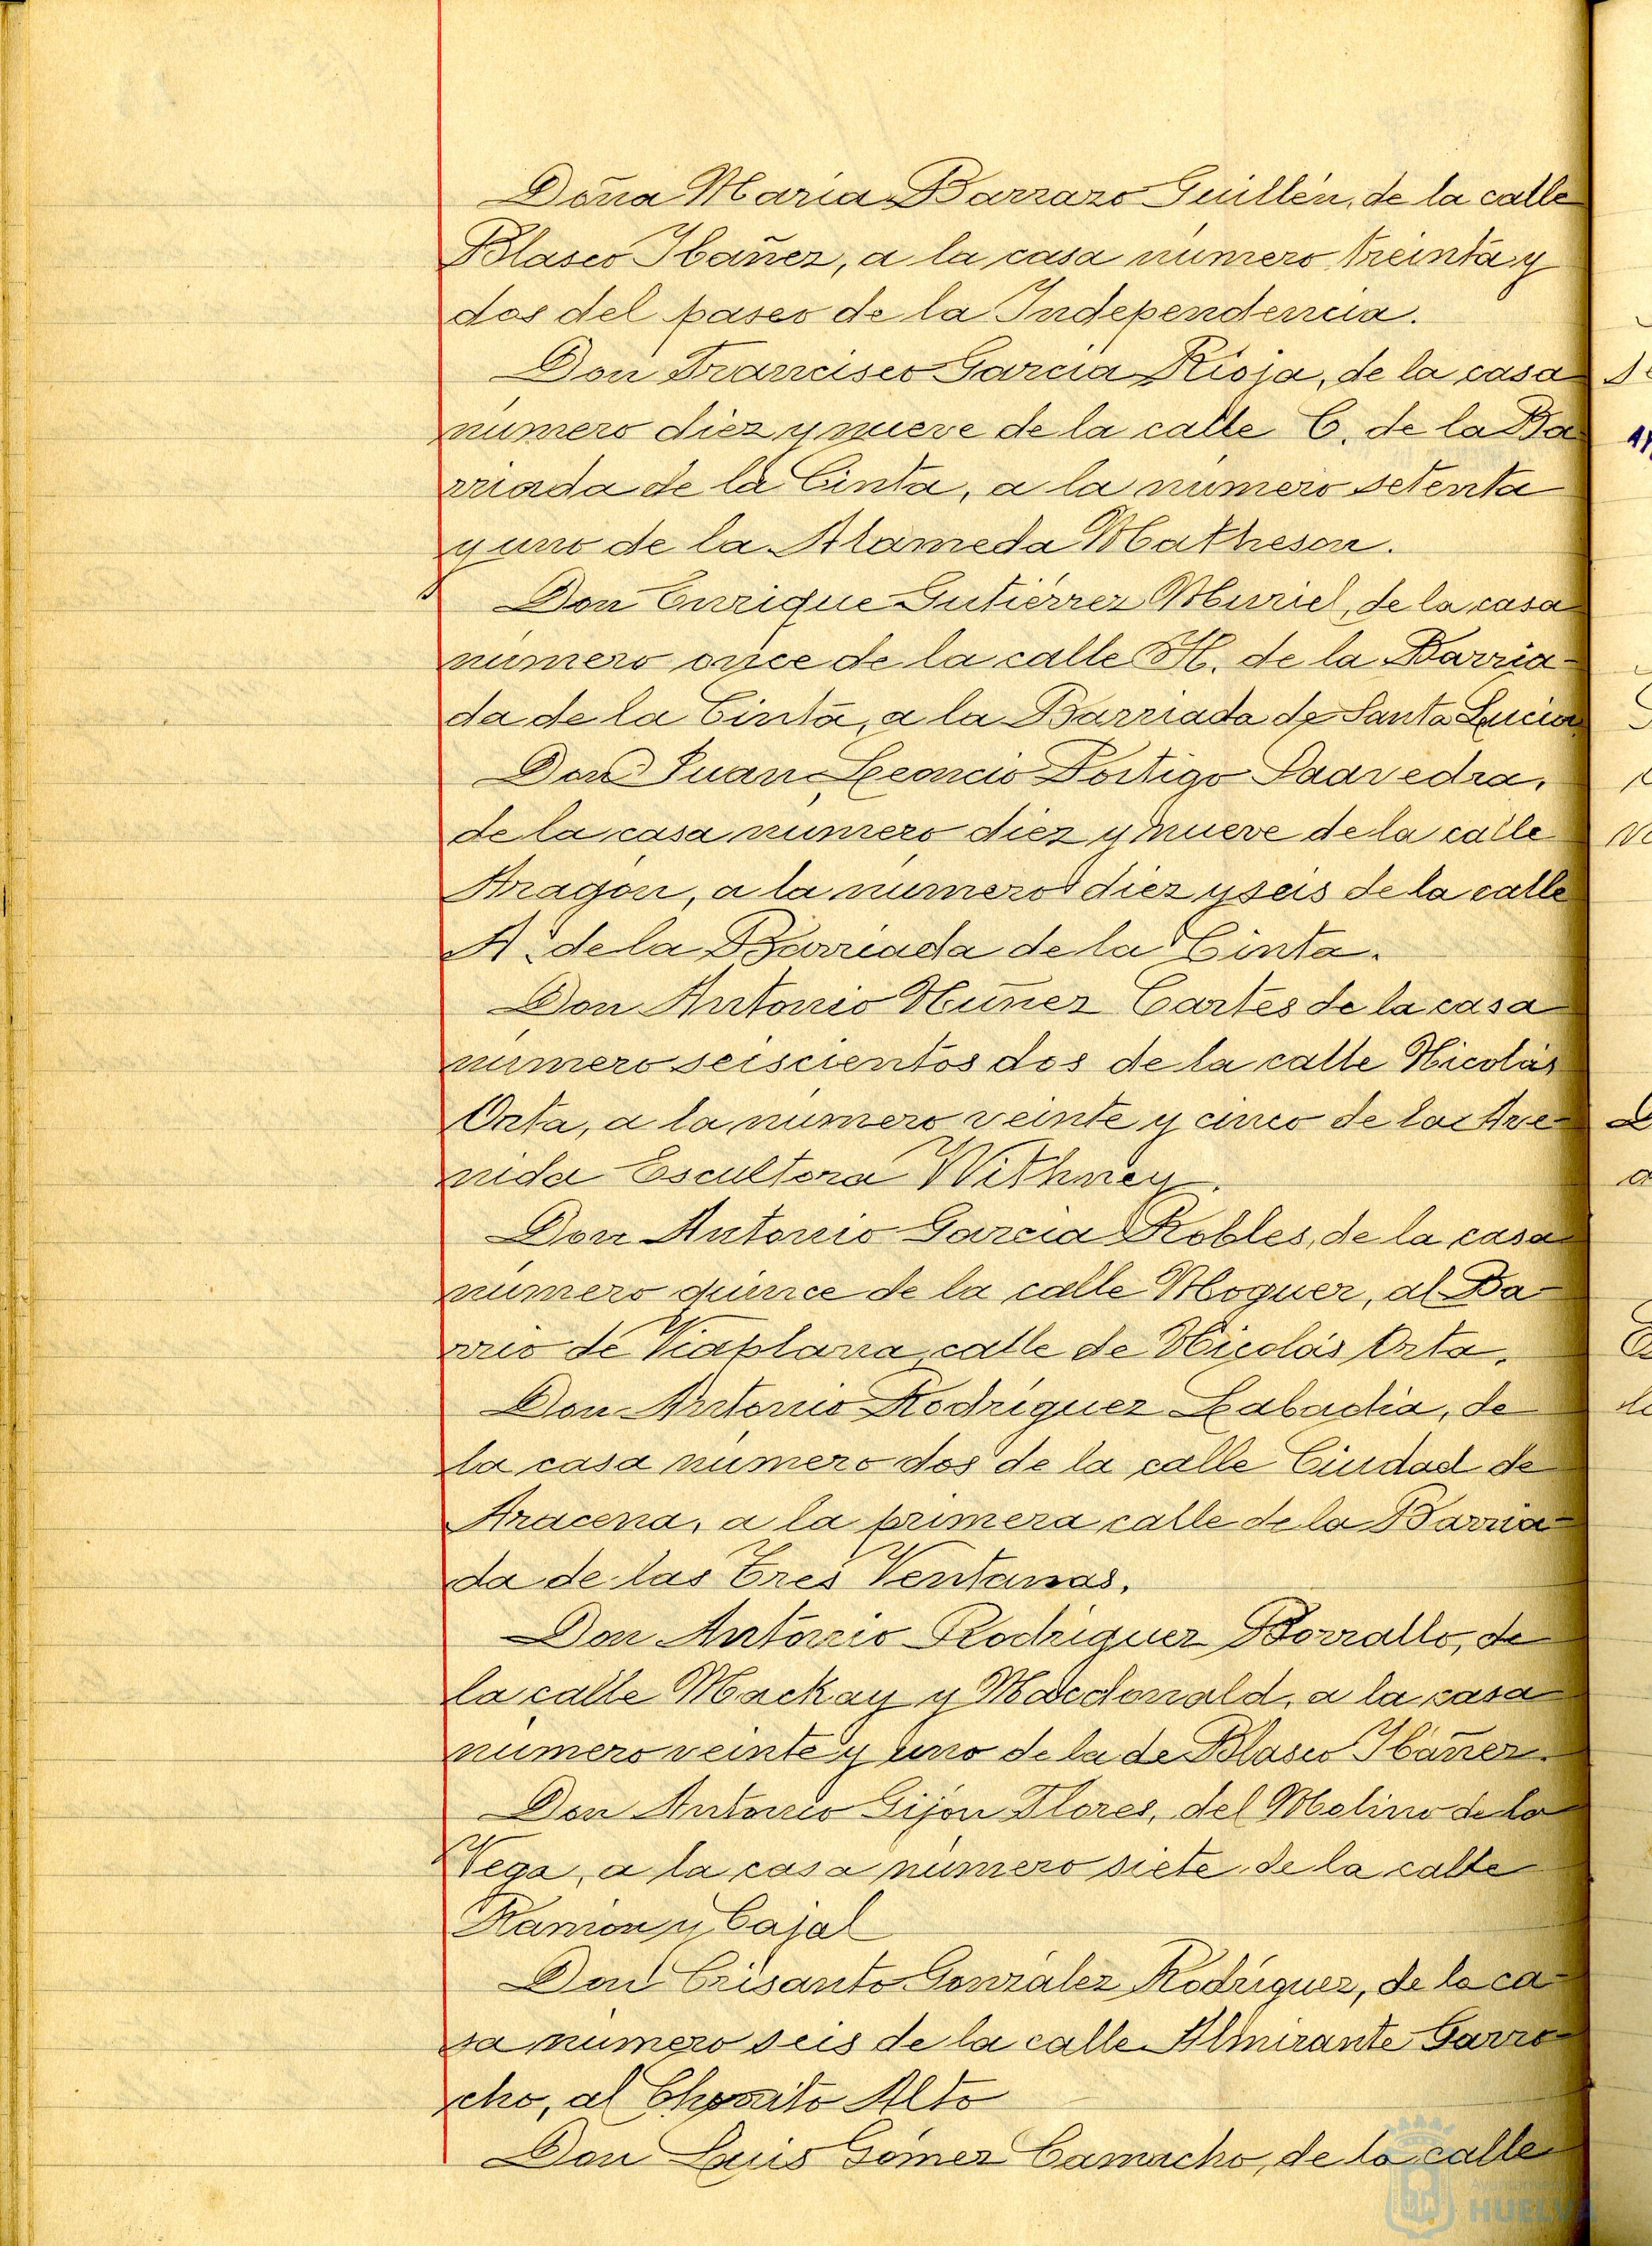 Doña María Barrazo Guillén, de la calle
Blasco Ibañez, a la casa número treinta y
dos del paseo de la Independencia.
Don Francisco Garcia Rioja, de la casa
número diez y nueve de la calle C. de la Ba
rriada de la Cinta, a la número setenta
y uno de la Alameda Matheson.
Don Enrique Gutiérrez Muriel, de la casa
número once de la calle H. de la Barria-
da de la Cinta, a la Barriada de Santa Lucia.
Don Juan Leoncio Postigo Saavedra,
de la casa número diez y nueve de la calle
Aragón, a la número diez y seis de la calle
A. de la Barriada de la Cinta.
Don Antonio Nuñez Cartes de la casa
número seiscientos dos de la calle Nicolás
Orta, a la número veinte y cinco de la Ave-
nida Escultora Withney.
Don Antonio Garcia Robles, de la casa
número quince de la calle Moguer, al Ba-
rrio de Viaplana, calle de Nicolás Orta.
Don Antonio Rodríguez Labadia, de
la casa número dos de la calle Ciudad de
Aracena, a la primera calle de la Barria-
da de las Tres Ventanas.
Don Antonio Rodriguez Borrallo, de
la calle Mackay y Macdonald, a la casa
número veinte y uno de la de Blasco Ibañez.
Don Antonio Gijón Flores, del Molino de la
Vega, a la casa número siete de la calle
Ramon y Cajal
Don Crisanto González Rodríguez, de la ca-
sa número seis de la calle Almirante Garro-
cho, al Chorrito Alto
Don Luis Gómez Camacho, de la calle
Ayuntamiento
HUELVA